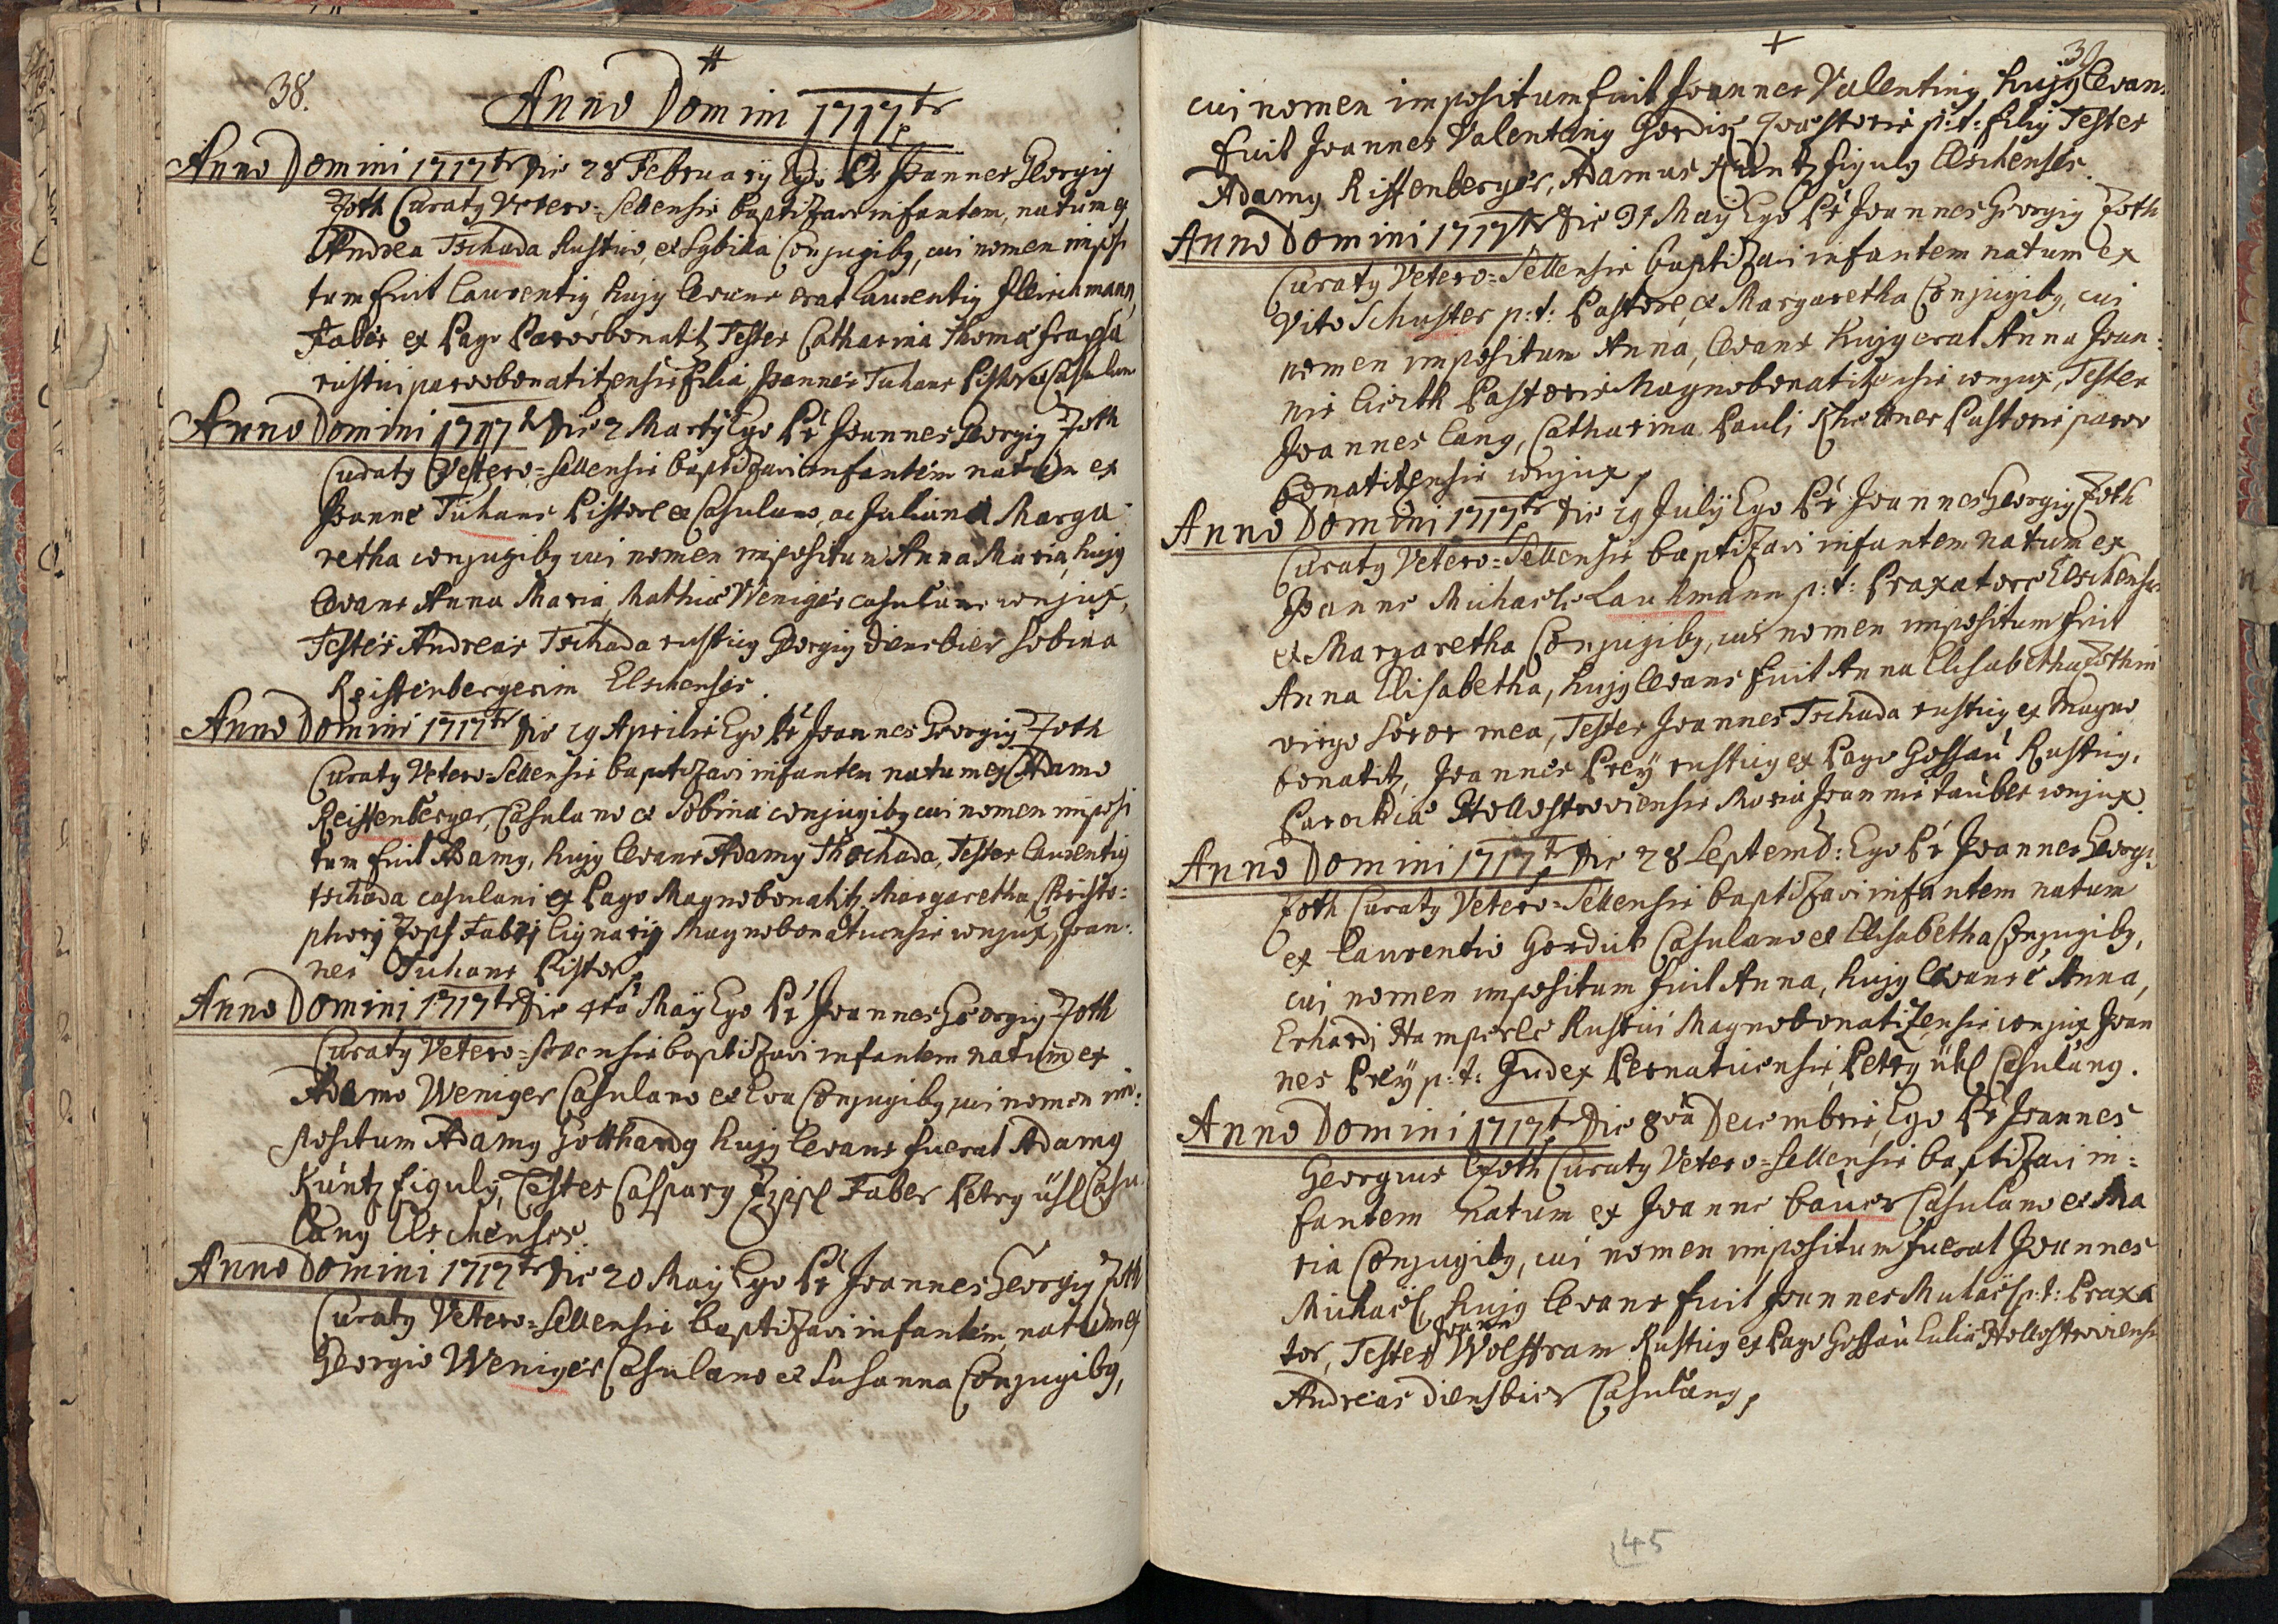 38.
Anno Domini 1717tr
Anno Domini 1717tr Die 28 Februarÿ Ego Pr Joannes Georgig
Zoth Curatg Vetero-Sellensis baptizavi infantem, natum ex
Andrea Tschada Rustico, et Sybilla Conjugibg, cui nomen imposi
tum fuit Laurentig, hujg levans erat Laurentig Fleischmann,
Faber ex Pago Parvobonatitz Testes Catharina Thoma
rustici parvobonatitzensis filia Joannes Tuhans Pistor et Casulan
Anno Domini 1717tr Die 2 Martÿ Ego Pr Joannes Georgig Zoth
Curatg Vetero-Sellensis baptizavi infantem natum ex
Joanne Tuhans Pistore et Casulano, ac Juliana Marga
retha conjugibg cui nomen impositum Anna Maria, hujg
levans Anna Maria Mathiæ Weniger casulani conjux,
Testes Andreas Tschada rusticg Georgig Diensbier Sobina
Reistenbergerin Elschenses.
Anno Domini 1717tr Die 19 Aprilis Ego Pr Joannes Georgig Zoth
Curatg Vetero-Sellensis baptizavi infantem natum ex Adamo
Reissenberger, Casulano et Sobina conjugibg cui nomen imposi
tum fuit Adamg, hujg levans Adamg Thschada, Testes Laurentig
tschada casulani ex Pago Magnobonatitz Margaretha Christo:
phorj Zopf Fabrj lignarÿ Magnobonaticensis conjux, Joan:
nes Tuhans Pistor,
Anno Domini 1717tr Die 4ta Maÿ Ego Pr Joannes Georgig Zoth
Curatg Vetero-Sellensis baptizavi infantem natum ex
Adamo Weniger Casulano et Eva Conjugibg cui nomen im:
positum Adamg Gotthardg hujg levans fuerat Adamg
Kuntz figulg, Testes Casparg Zipl Faber Petrg ühl Casu
lang Elschenses.
Anno Domini 1717tr Die 20 Maÿ Ego Pr Joannes Georgig Zoth
Curatg Vetero-Sellensis baptizavi infantem, natum ex
Georgio Weniger Casulano et Susanna Conjugibg,
39
cui nomen impositum fuit Joannes Valenting hujg levans
fuit Joannes Valenting Gordis Quæstoris p:t: filig Testes
Adamg Rissenberger, Adamus Kuntz figulg Elschenses.
Anno Domini 1717tr Die 31 Maÿ Ego Pr Joannes Georgig Zoth
Curatg Vetero-Sellensis baptizavi infantem natum ex
Vito Schuster p:t: Pastore et Margaretha Conjugibg, cui
nomen impositum Anna, levans hujg erat Anna Joan:
nis Pastoris Magnobonatitzensis conjux, Testes
Joannes Lang, Catharina Pauli Pastoris parvo
bonatitzensis conjux,
Anno Domini 1717tr Die 19 Julÿ Ego Pr Joannes Georgig Zoth
Curatg Vetero-Sellensis baptizavi infantem natum ex
Joanne Michaele Lauhmann p:t: Praxatore Elschensi
et Margaretha Conjugibg, cui nomen impositum fuit
Anna Elisabetha, hujg levans fuit Anna Elisabetha Zothin
virgo soror mea, Testes Joannes Tschada rusticg ex Magno
bonatitz, Joannes Preÿ rusticg ex Pago Gossau Rusticg,
Parochiæ Hollostroviensis Maria Joannis tauber conjux
Anno Domini 1717tr Die 28 Septemb: Ego Pr Joannes Georgi,
Zoth Curatg Vetero-Sellensis baptizavi infantem natum
ex Laurentio Gordick Casulano et Elisabetha Conjugibg,
cui nomen impositum fuit Anna, hujg levans è Anna,
Erhardj Hamperle Rustici Magnobonatizensis conjux Joan
nes Preÿ p:t: Judex Pernaticensis, Petrg ühl Casulang.
Anno Domini 1717tr Die 8va Decembris, Ego Pr Joannes
Georgius Zoth Curatg Vetero-Sellensis baptizavi in:
fantem natum ex Joanne bauer Casulano et Ma
ria Conjugibg, cui nomen impositum fuerat Joannes
Michaël hujg levans fuit Joannes p:t: Praxa
tor, Testes Joann Wolffram Rusticg ex Pago Gossau Hollostroviensi
Andreas Diensbier Casulang,
145